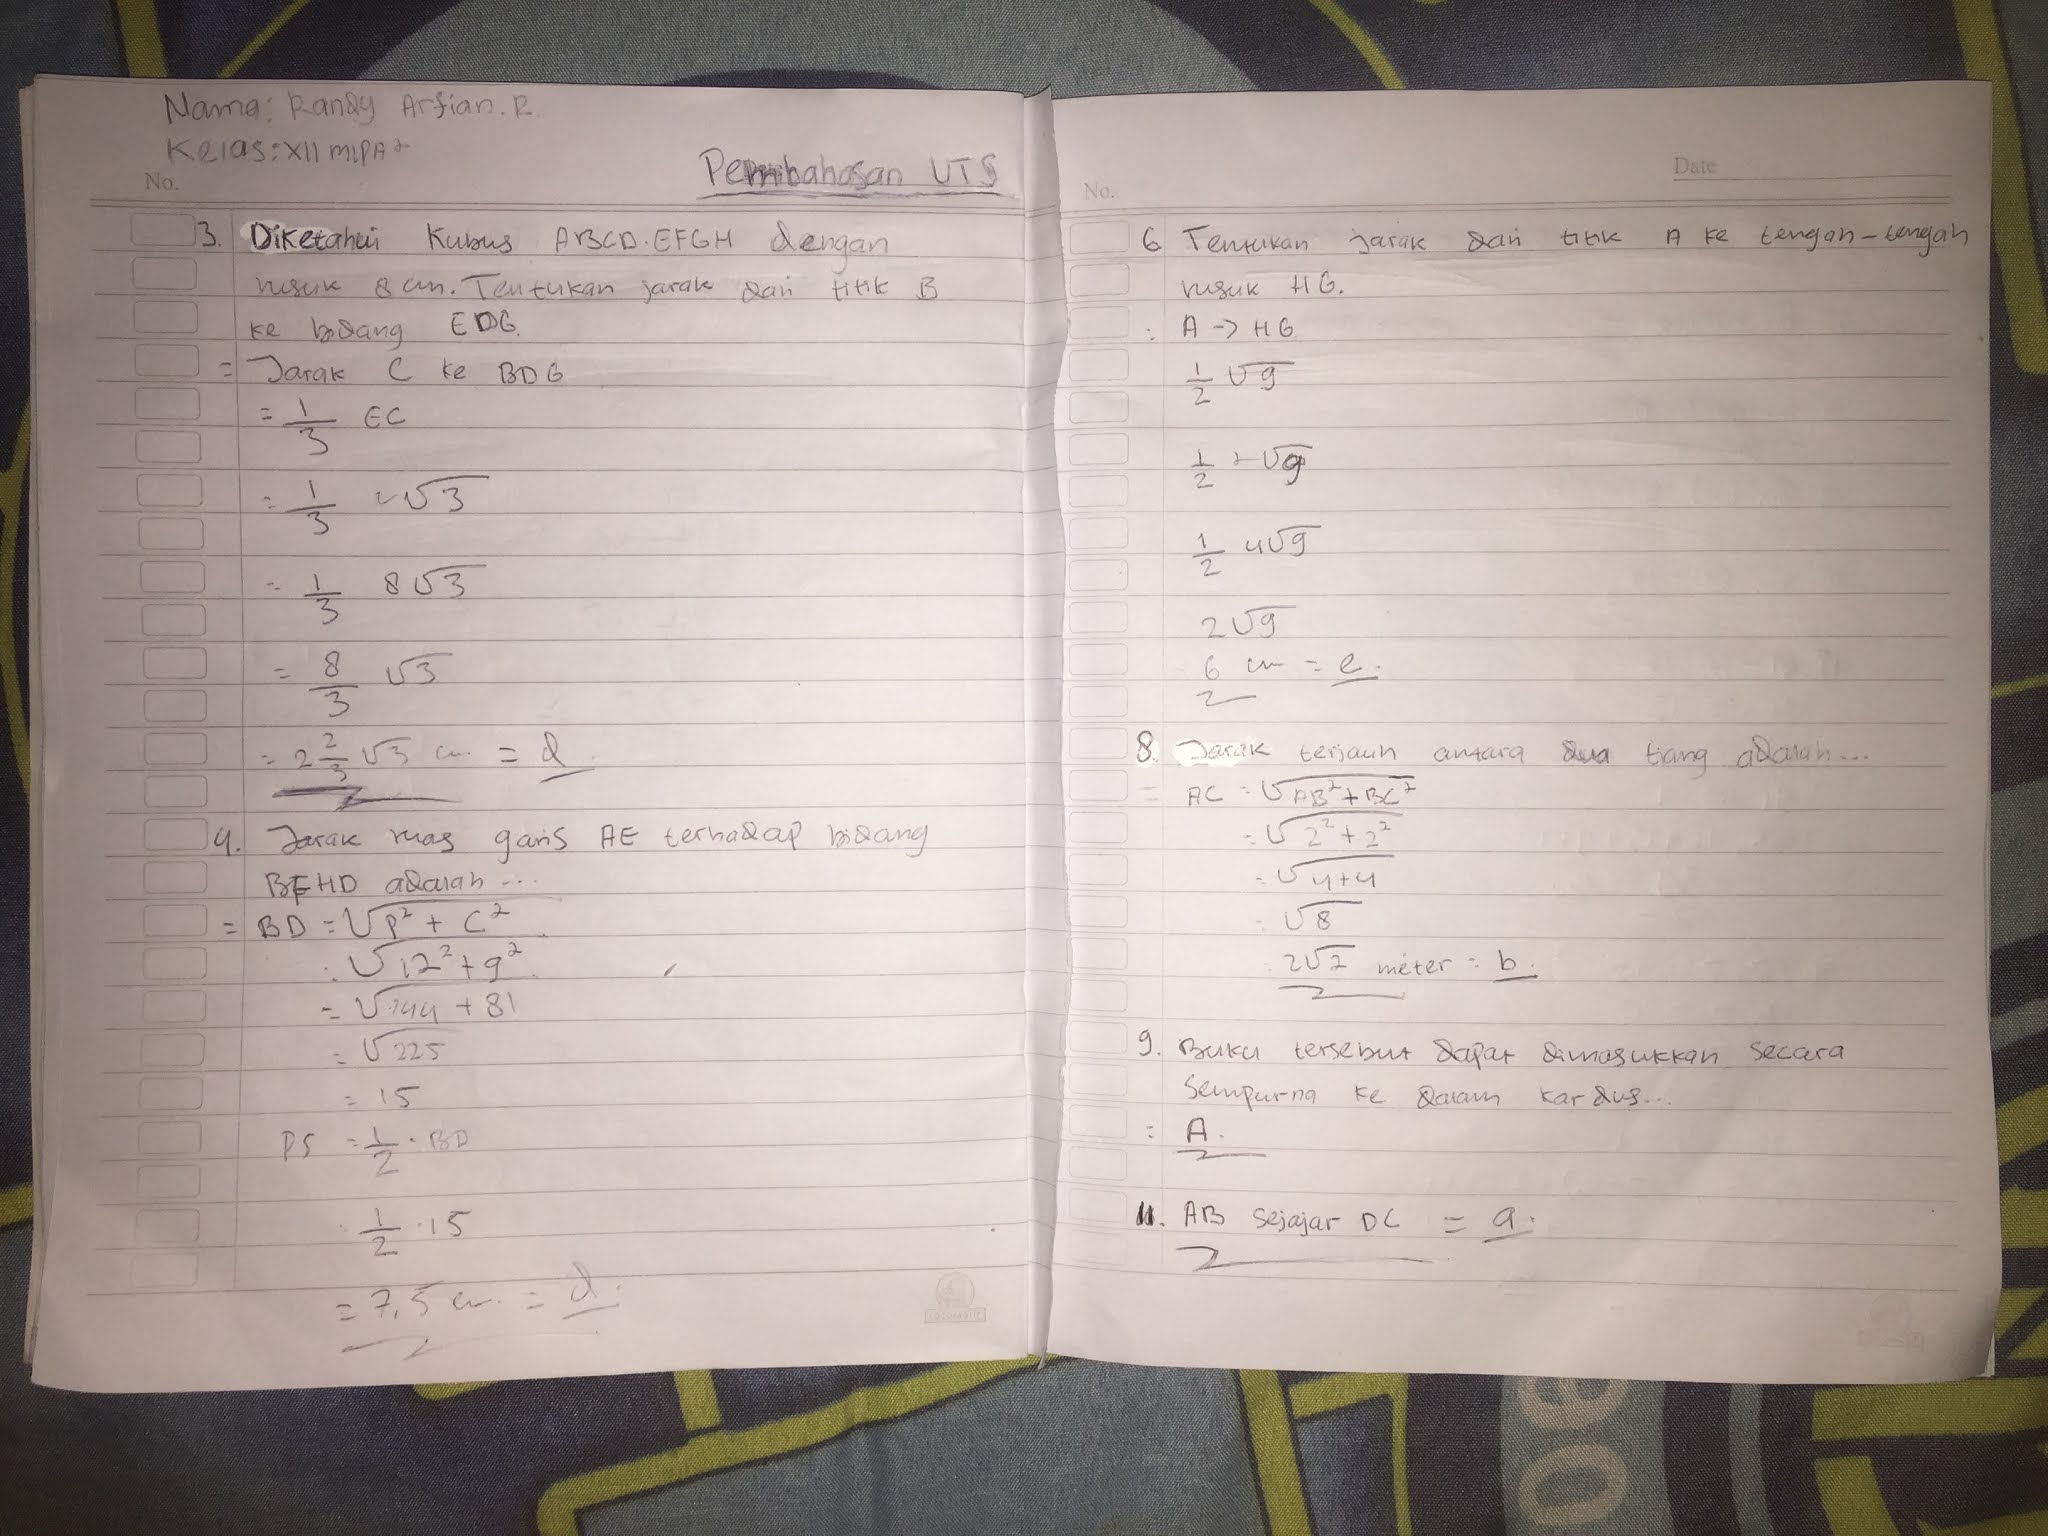 Nama: Randy Arfian.R
Kelas: XII MIPA 2
No.
Pembahasan UTS
3. Diketahui Kubus ABCD.EFGH dengan
rusuk 8 cm. Tentukan jarak dari titik B
ke bidang EDG.
= Jarak C ke BDG
= 1/3 EC
= 1/3 r√3
= 1/3 8√3
= 8/3 √3
= 2 2/3 √3 cm = d.
4. Jarak ruas garis AE terhadap bidang
BFHD adalah ...
= BD = √P² + C²
= √12² + 9²
= √144 + 81
= √225
= 15
PS = 1/2 . BD
1/2 . 15
= 7,5 cm. = d.
No.
Date
6 Tentukan jarak dari titik A ke tengah-tengah
rusuk HG.
: A -> HG
1/2 √9
1/2 r√9
1/2 4√9
2√9
6 cm = e.
8. Jarak terjauh antara dua tiang adalah...
= AC = √AB² + BC²
= √2² + 2²
= √4+4
= √8
2√2 meter = b.
9. Buku tersebut dapat dimasukkan secara
sempurna ke dalam kardus...
= A.
11. AB sejajar DC = a.